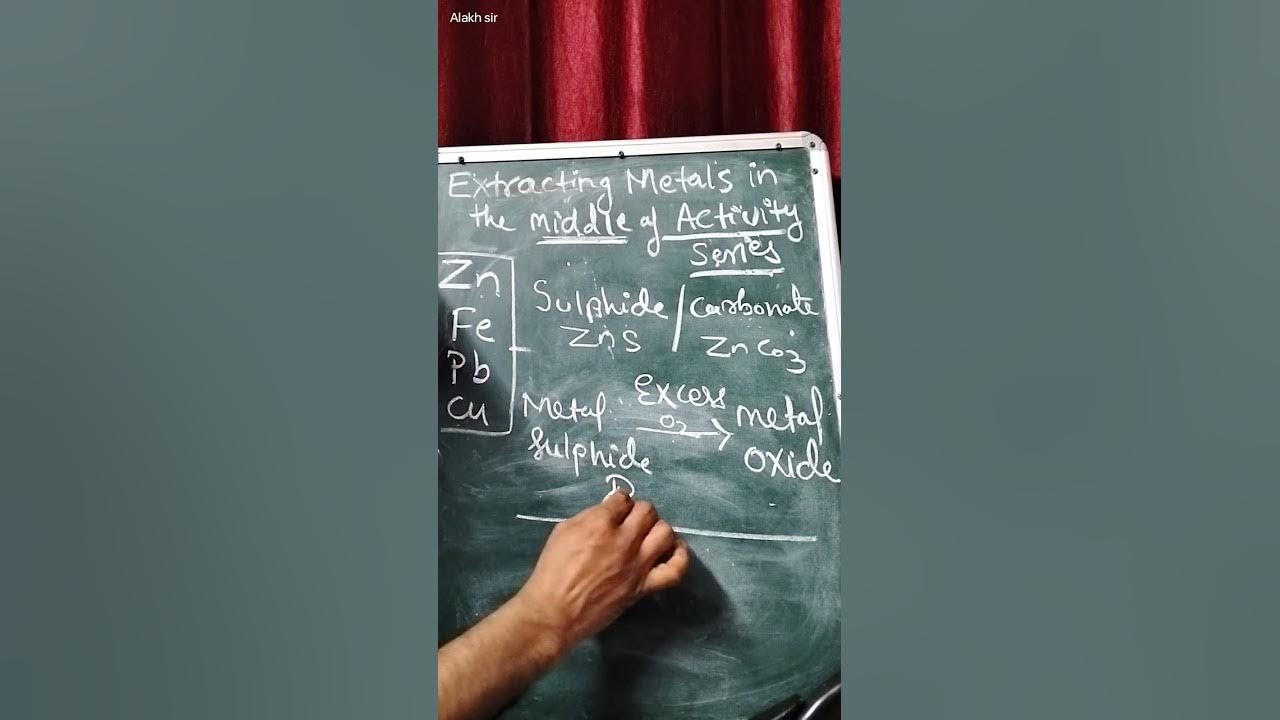 Alakh sir
Extracting Metals in
the middle of Activity
Series
Zn
Fe
Pb
Cu
Sulphide / Carbonate
ZnS ZnCO3
Metal Excess metal
O2
Sulphide oxide
R